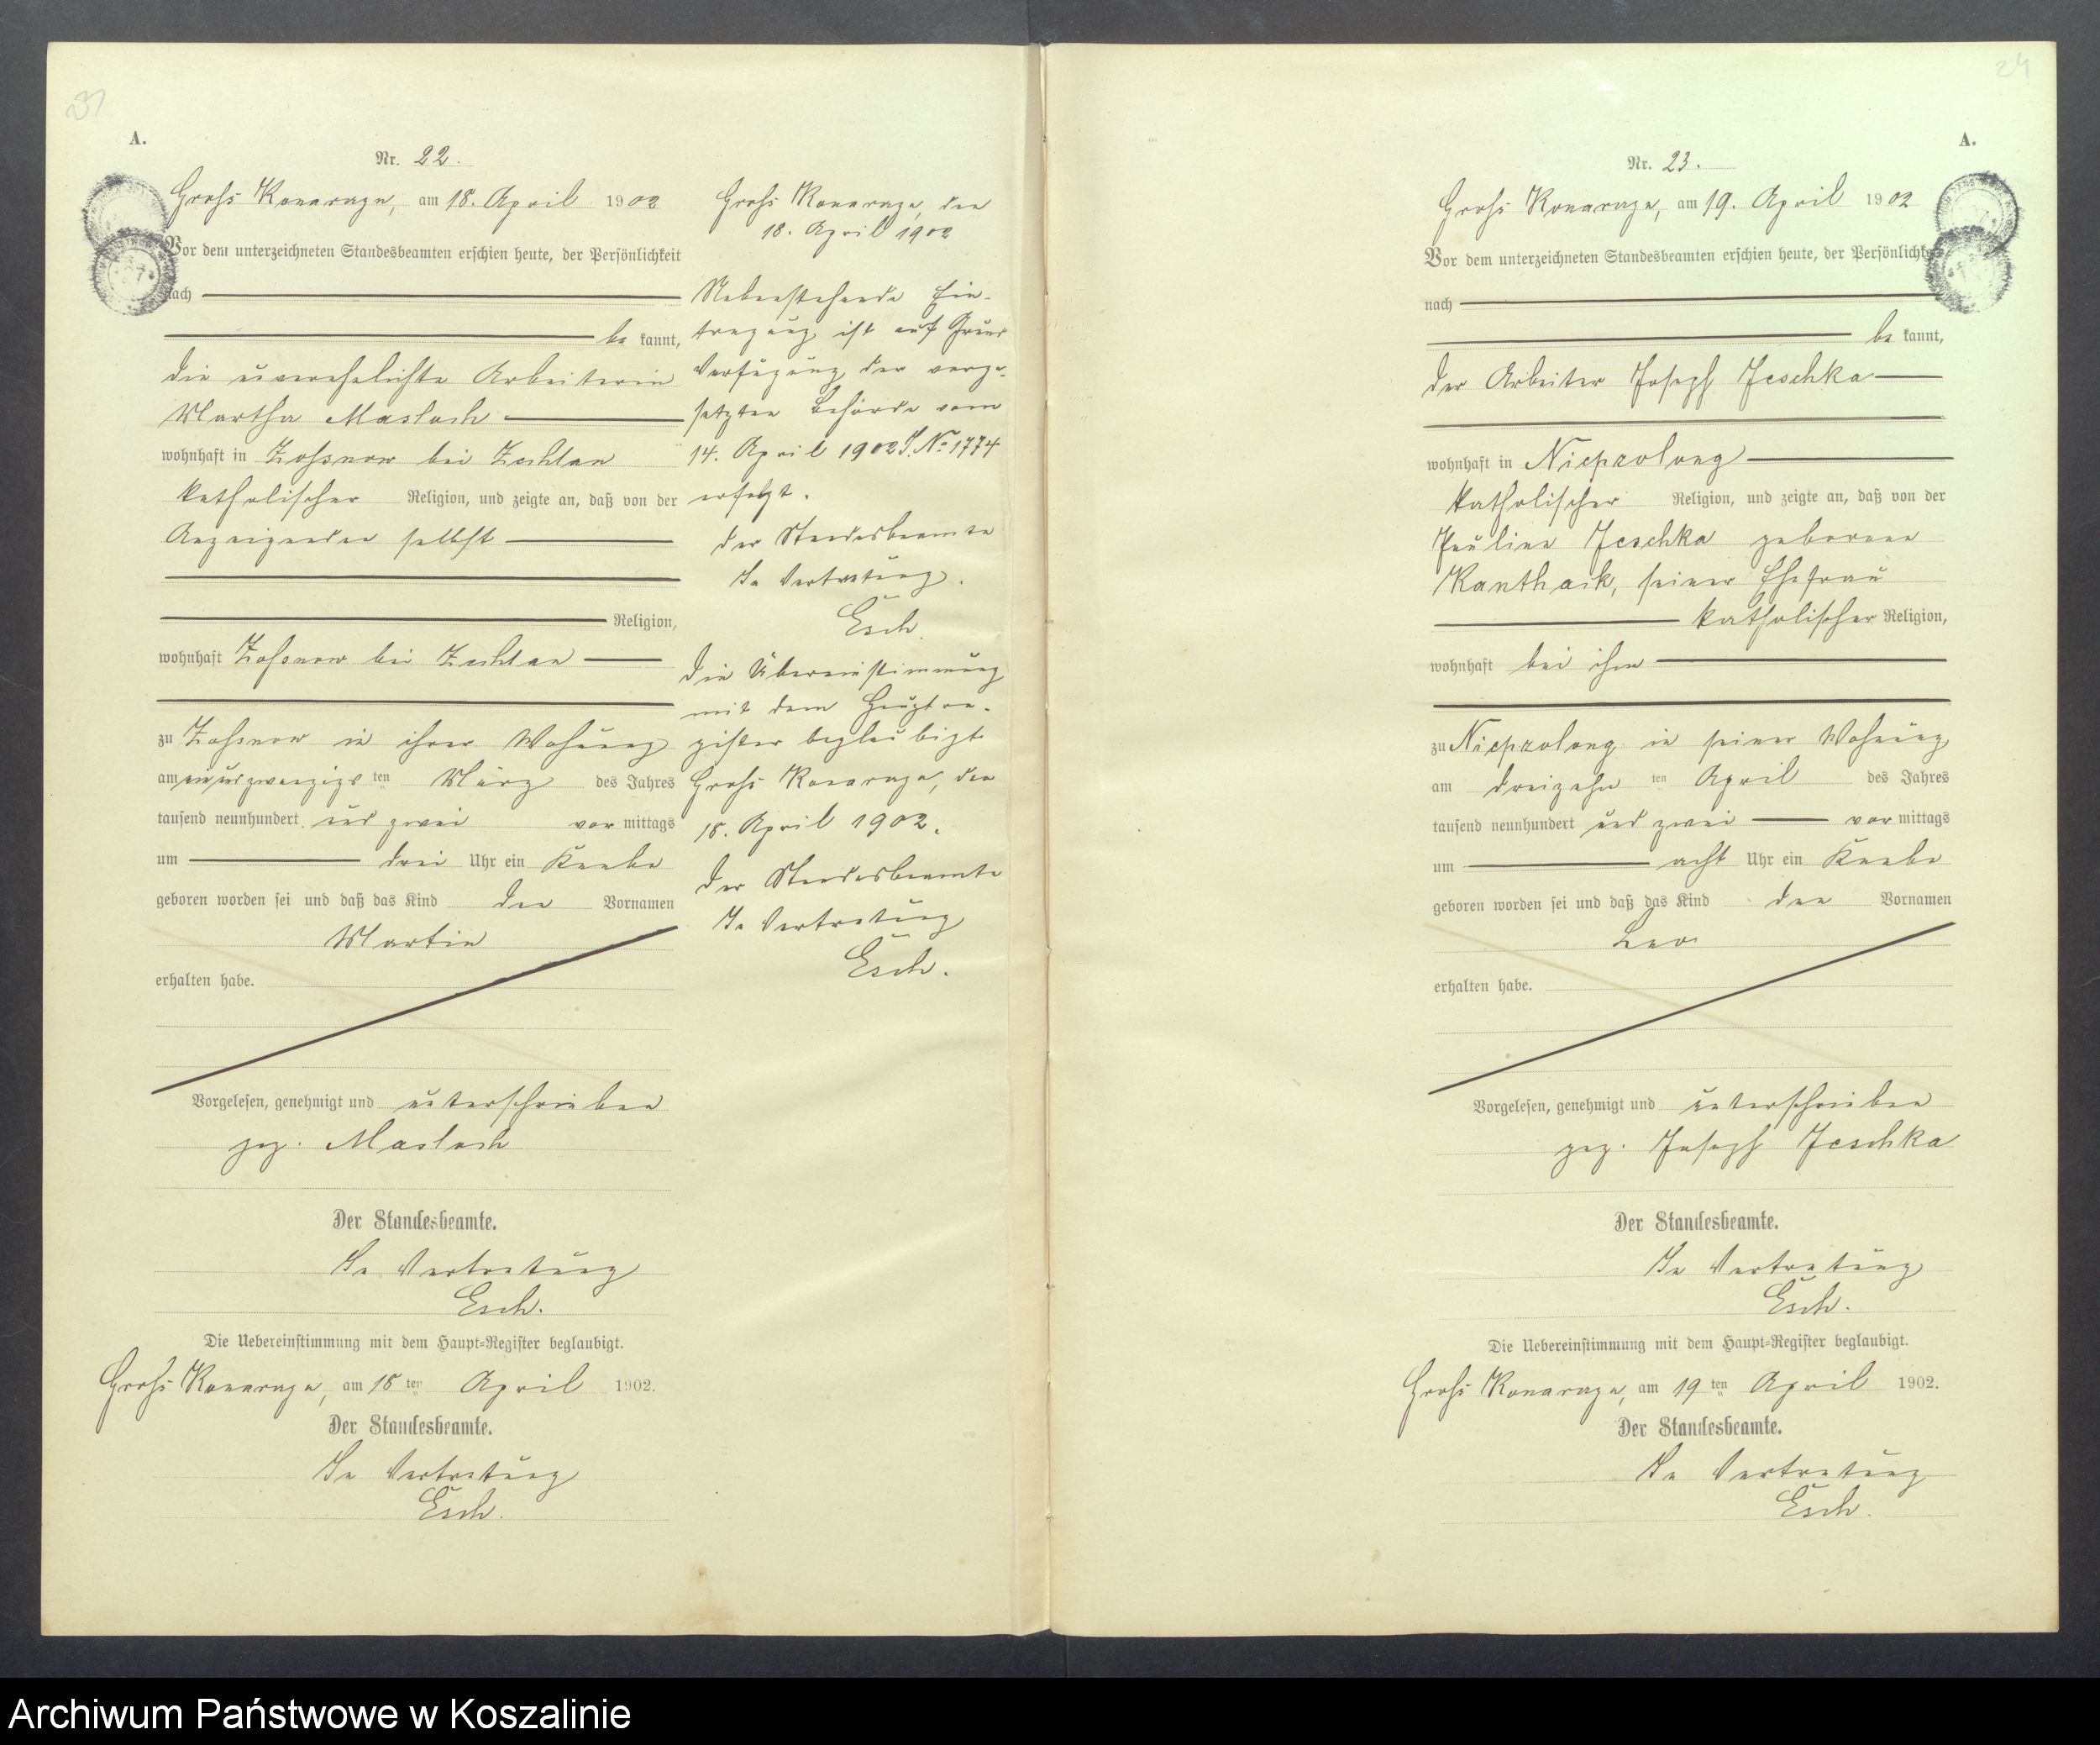 A.
Nr. 22.
Groß Konarzyn, am 18. April 1902
Vor dem unterzeichneten Standesbeamten erschien heute, der Persönlichkeit
nach
be kannt,
die unverehelichte Arbeiterin
Martha Masloch
wohnhaft in bei
katholischer Religion, und zeigte an, daß von der
Anzeigenden selbst
Religion,
wohnhaft bei
zu in ihrer Wohnung
am einundzwanzigsten März des Jahres
tausend neunhundert und zwei vor mittags
um drei Uhr ein Knabe
geboren worden sei und daß das Kind den Vornamen
Martin
erhalten habe.
Vorgelesen, genehmigt und unterschrieben
gez. Masloch
Der Standesbeamte.
In Vertretung
Esch.
Die Uebereinstimmung mit dem Haupt-Register beglaubigt.
Groß Konarzyn, am 18 ten April 1902.
Der Standesbeamte.
In Vertretung
Esch.
Groß Konarzyn, den
18. April 1902
Nebenstehende Ein-
tragung ist auf Grund
Verfügung der vorge-
setzten Behörde vom
14. April 1902 J. No 1774
erfolgt.
Der Standesbeamte
In Vertretung.
Esch.
Die Übereinstimmung
mit dem Hauptre-
gister beglaubigt
Groß Konarzyn, den
18. April 1902.
Der Standesbeamte
In Vertretung
Esch.
24
A.
Nr. 23.
Groß Konarzyn, am 19. April 1902
Vor dem unterzeichneten Standesbeamten erschien heute, der Persönlichkeit
nach
be kannt,
der Arbeiter Joseph Jeschka
wohnhaft in Niepzolong
katholischer Religion, und zeigte an, daß von der
Pauline Jeschka geborene
Kanthack, seiner Ehefrau
katholischer Religion,
wohnhaft bei ihm
zu Niepzolong in seiner Wohnung
am dreizehn ten April des Jahres
tausend neunhundert und zwei vor mittags
um acht Uhr ein Knabe
geboren worden sei und daß das Kind den Vornamen
Leo
erhalten habe.
Vorgelesen, genehmigt und unterschrieben
gez. Joseph Jeschka
Der Standesbeamte.
In Vertretung
Esch.
Die Uebereinstimmung mit dem Haupt-Register beglaubigt.
Groß Konarzyn, am 19 ten April 1902.
Der Standesbeamte.
In Vertretung
Esch.
Archiwum Państwowe w Koszalinie